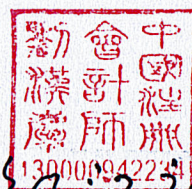 中國注冊
會計師
漢
130000942234